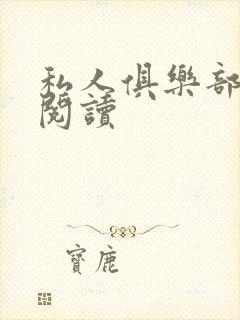 私人俱樂部
閱讀
寶鹿